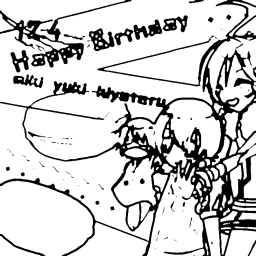 12.4
Happy Birthday
aki yuki kiyotaru